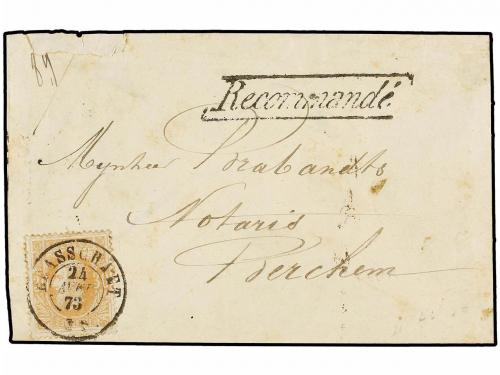 89
Recommandé
Mynheer Brabandts
Notaris
Berchem
BRASSCHAET
24
73